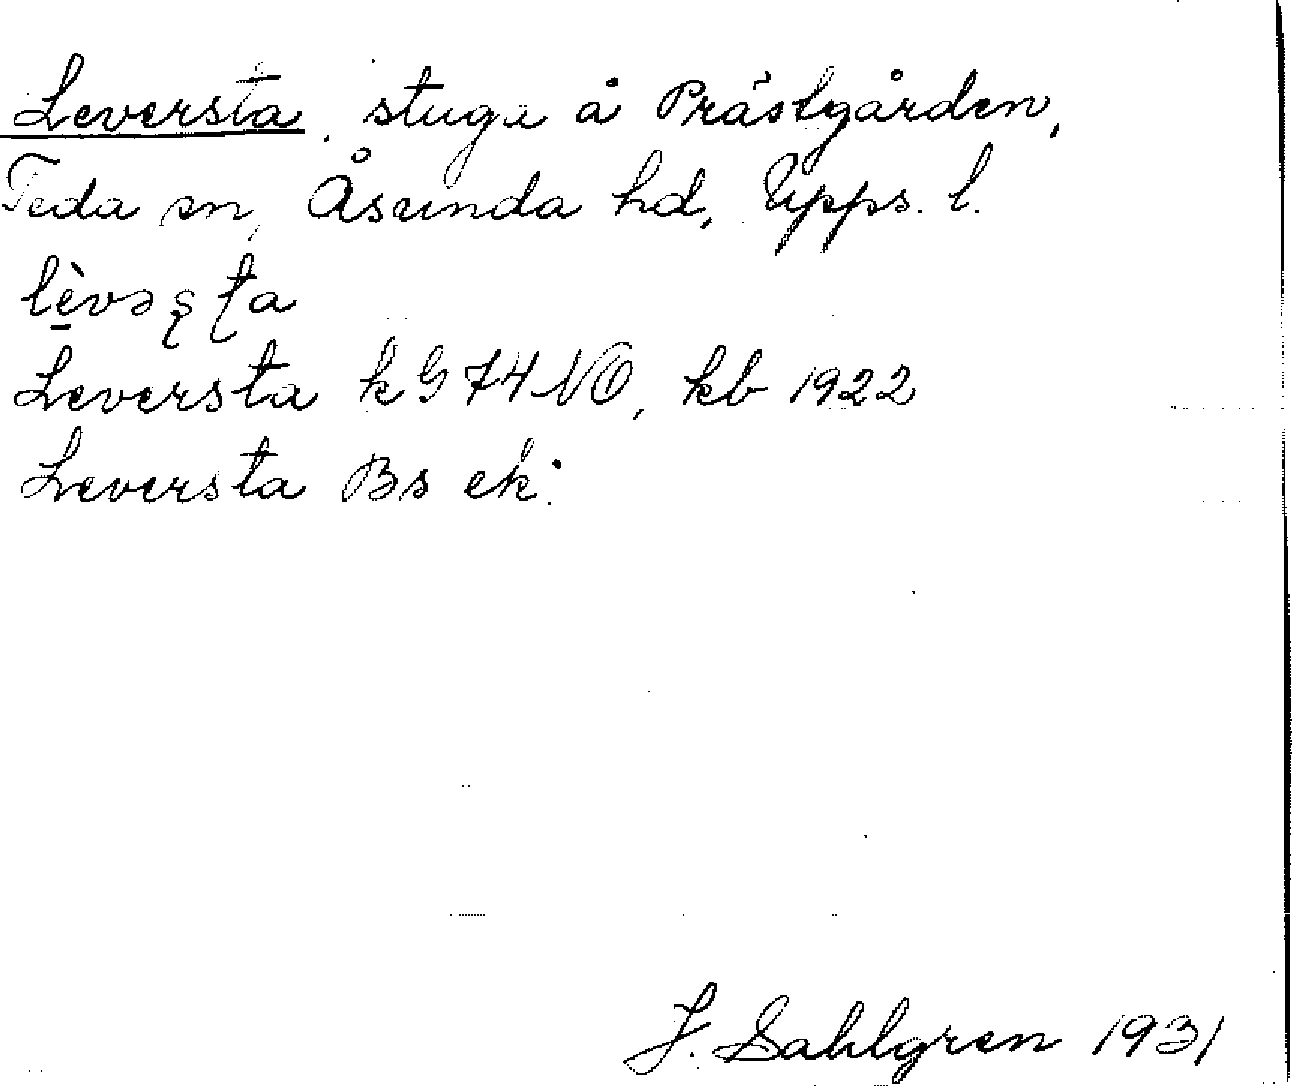 Leversta, stuga å Prästgården,
Teda sn, Åsunda hd, Upps. l.
lè̠vəʂʈa
Leversta k G 74 NO, kb 1922
Leversta Bs ek:
J. Sahlgren 1931